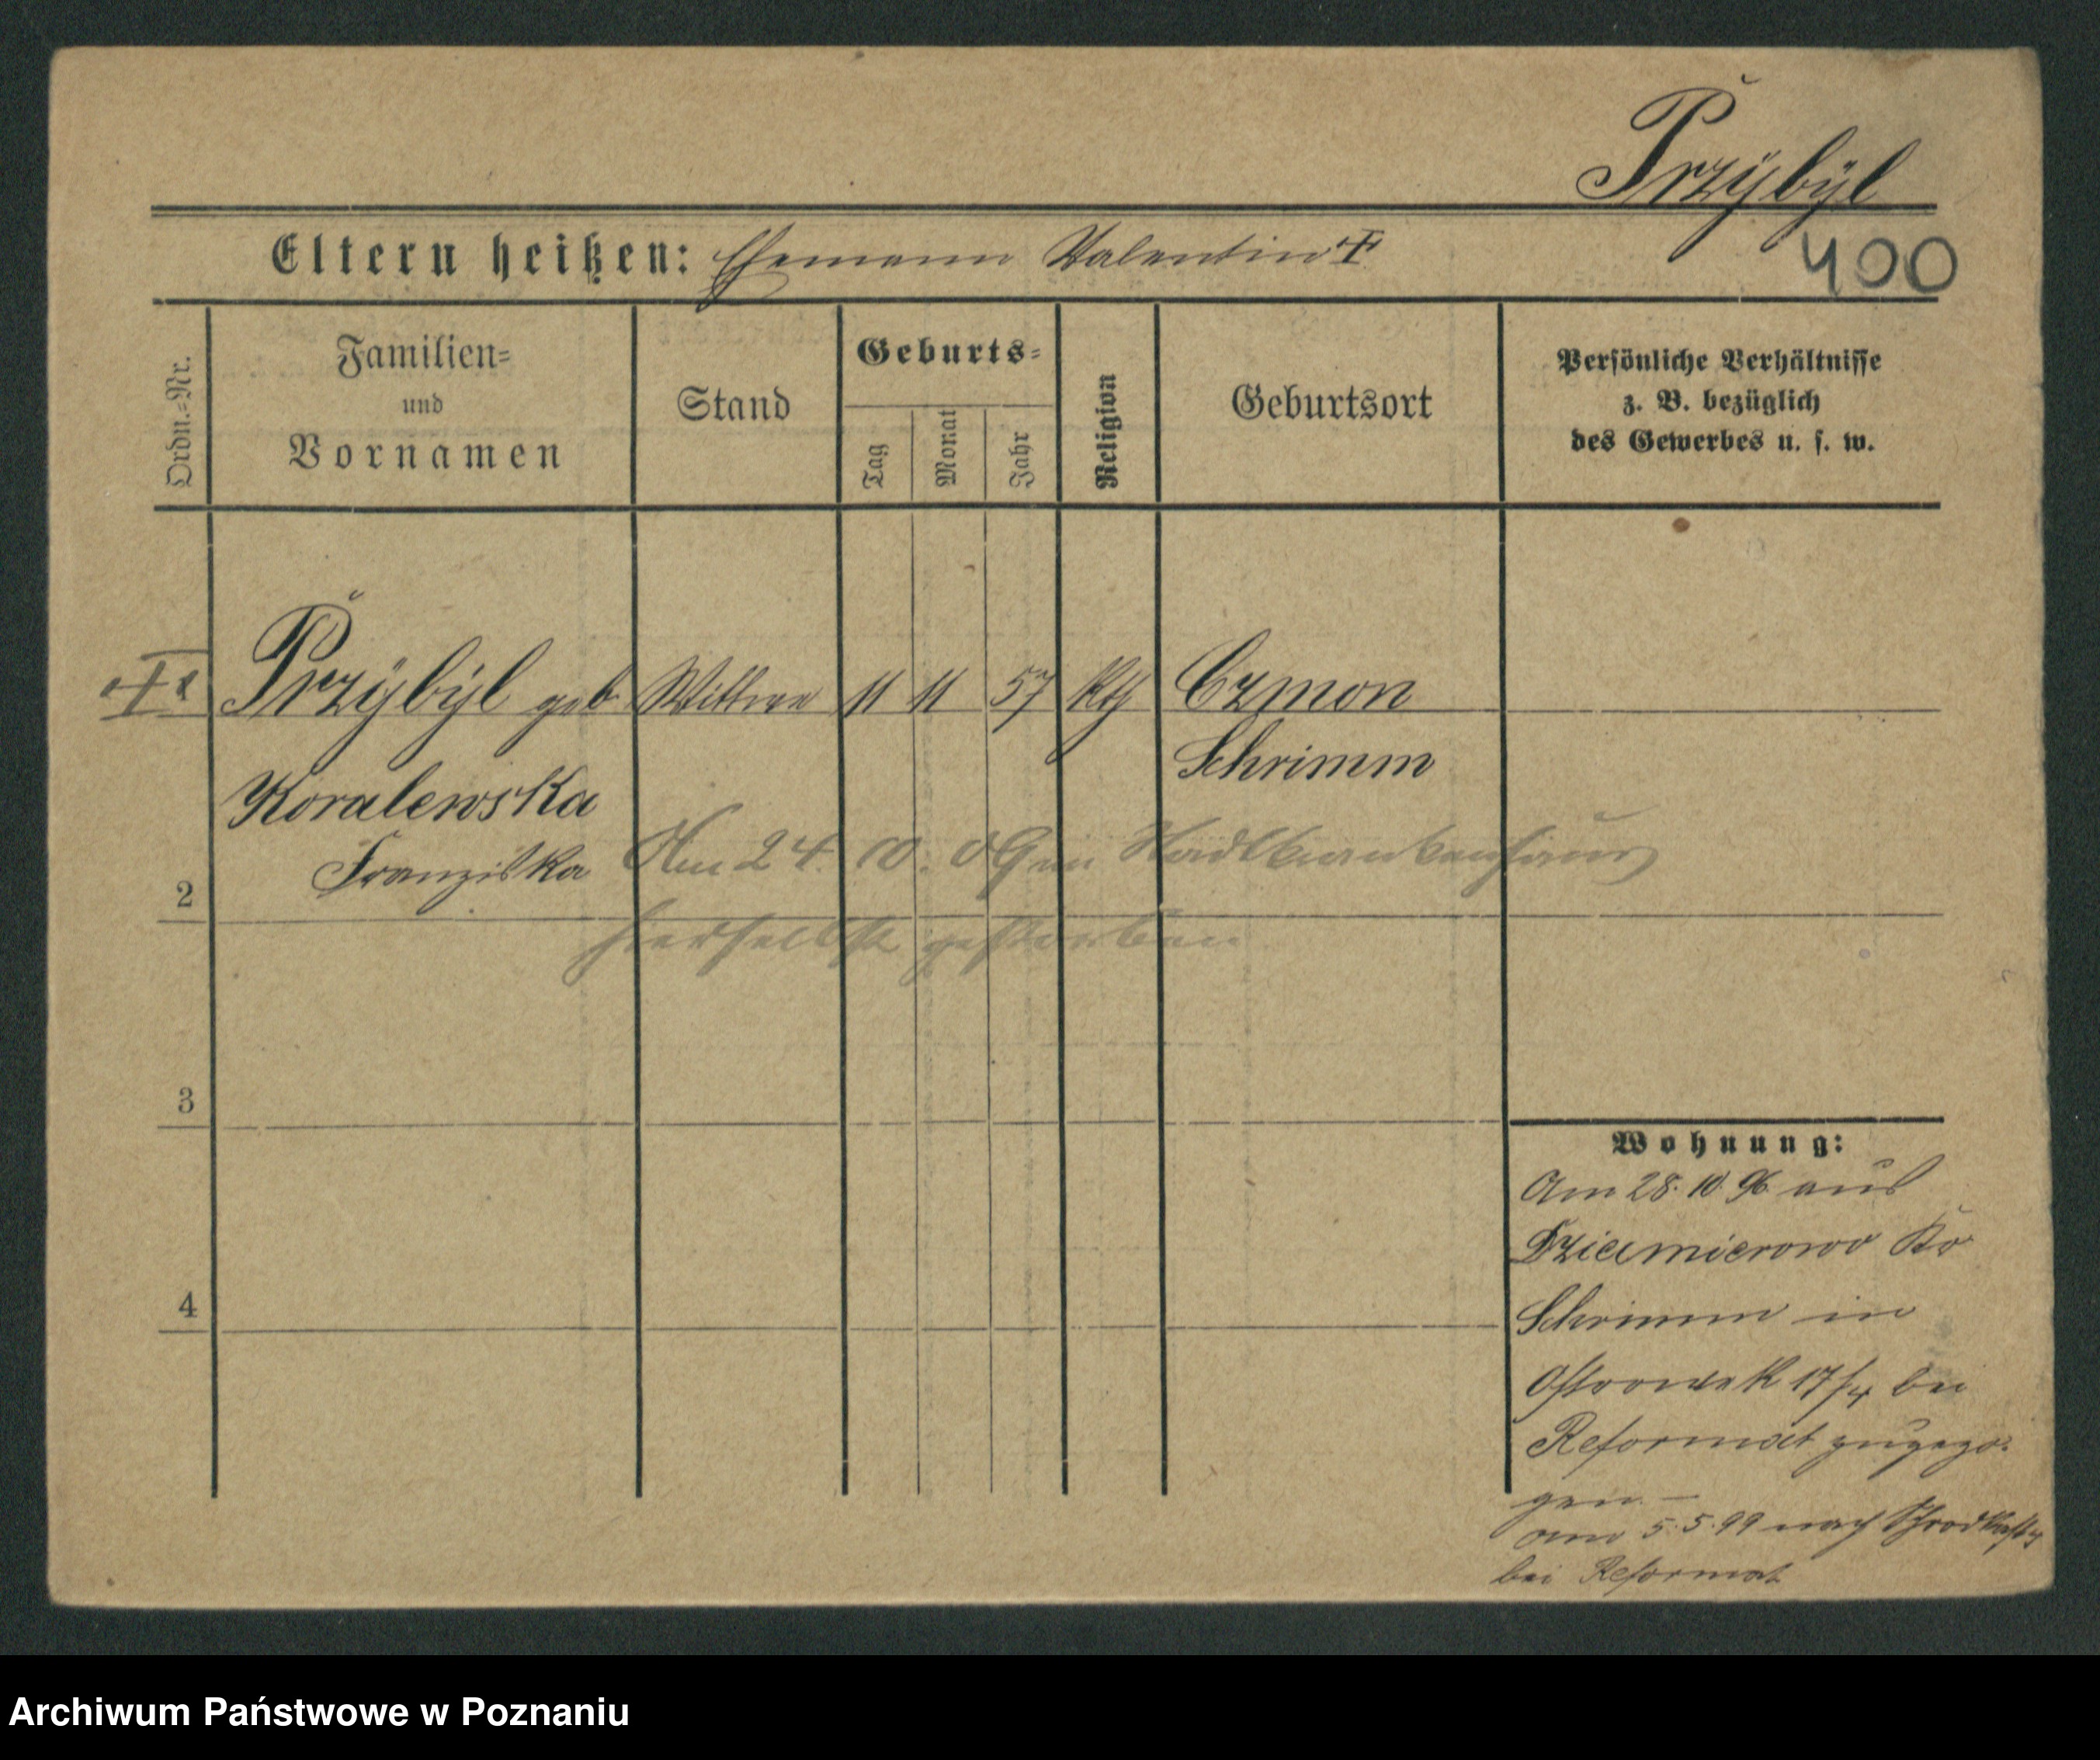 Przÿbÿl
Eltern heißen: Ehemann Valentin †
400
Ordn.=Nr.
Familien=
und
Vornamen
Stand
Geburts=
Tag
Monat
Jahr
Religion
Geburtsort
Persönliche Verhältnisse
z. B. bezüglich
des Gewerbes u. s. w.
Przÿbÿl geb Wittwe 11 11 57 Kth Czmon
Schrimm
Koralewska
Franziska
Am 24. 10. 09 im Stadtkrankenhaus
2
hierselbst gestorben
3
4
Wohnung:
Am 28. 10. 96 aus
Dziecmierowo Kr
Schrimm in
Ostrowek 17/4 bei
Reformat zugezo-
gen. —
am 5. 5. 99 nach
bei Reformat
Archiwum Państwowe w Poznaniu